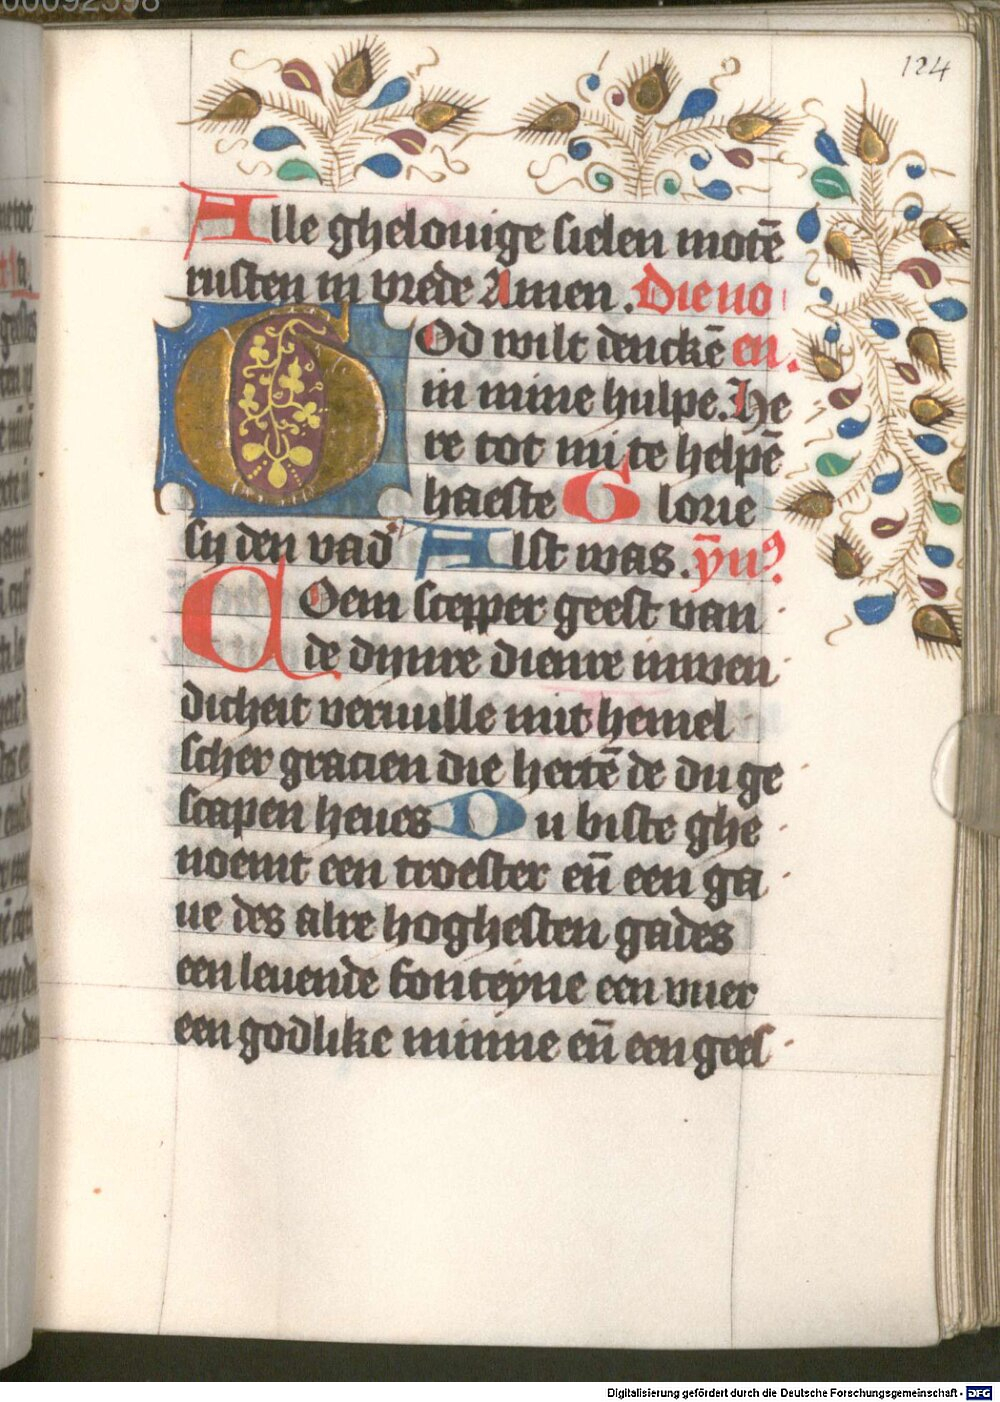 124
Alle ghelouige sielen motē
rusten in vrede Amen . Die no
God wilt denckē en.
in mine hulpe. He
re tot mi te helpē
haeste Glorie
sy den vad' Alst was . ȳn⁹.
Coem scepper geest van
de dynre dienre inwen
dicheit veruulle mit hemel
scher gracien die hertē de du ge
scapen heues Du biste ghe
noemt een troester en̄ een ga
ue des alre hoghesten gades
een leuende fonteyne een vuer
een godlike minne en̄ een gees
Digitalisierung gefördert durch die Deutsche Forschungsgemeinschaft - DFG